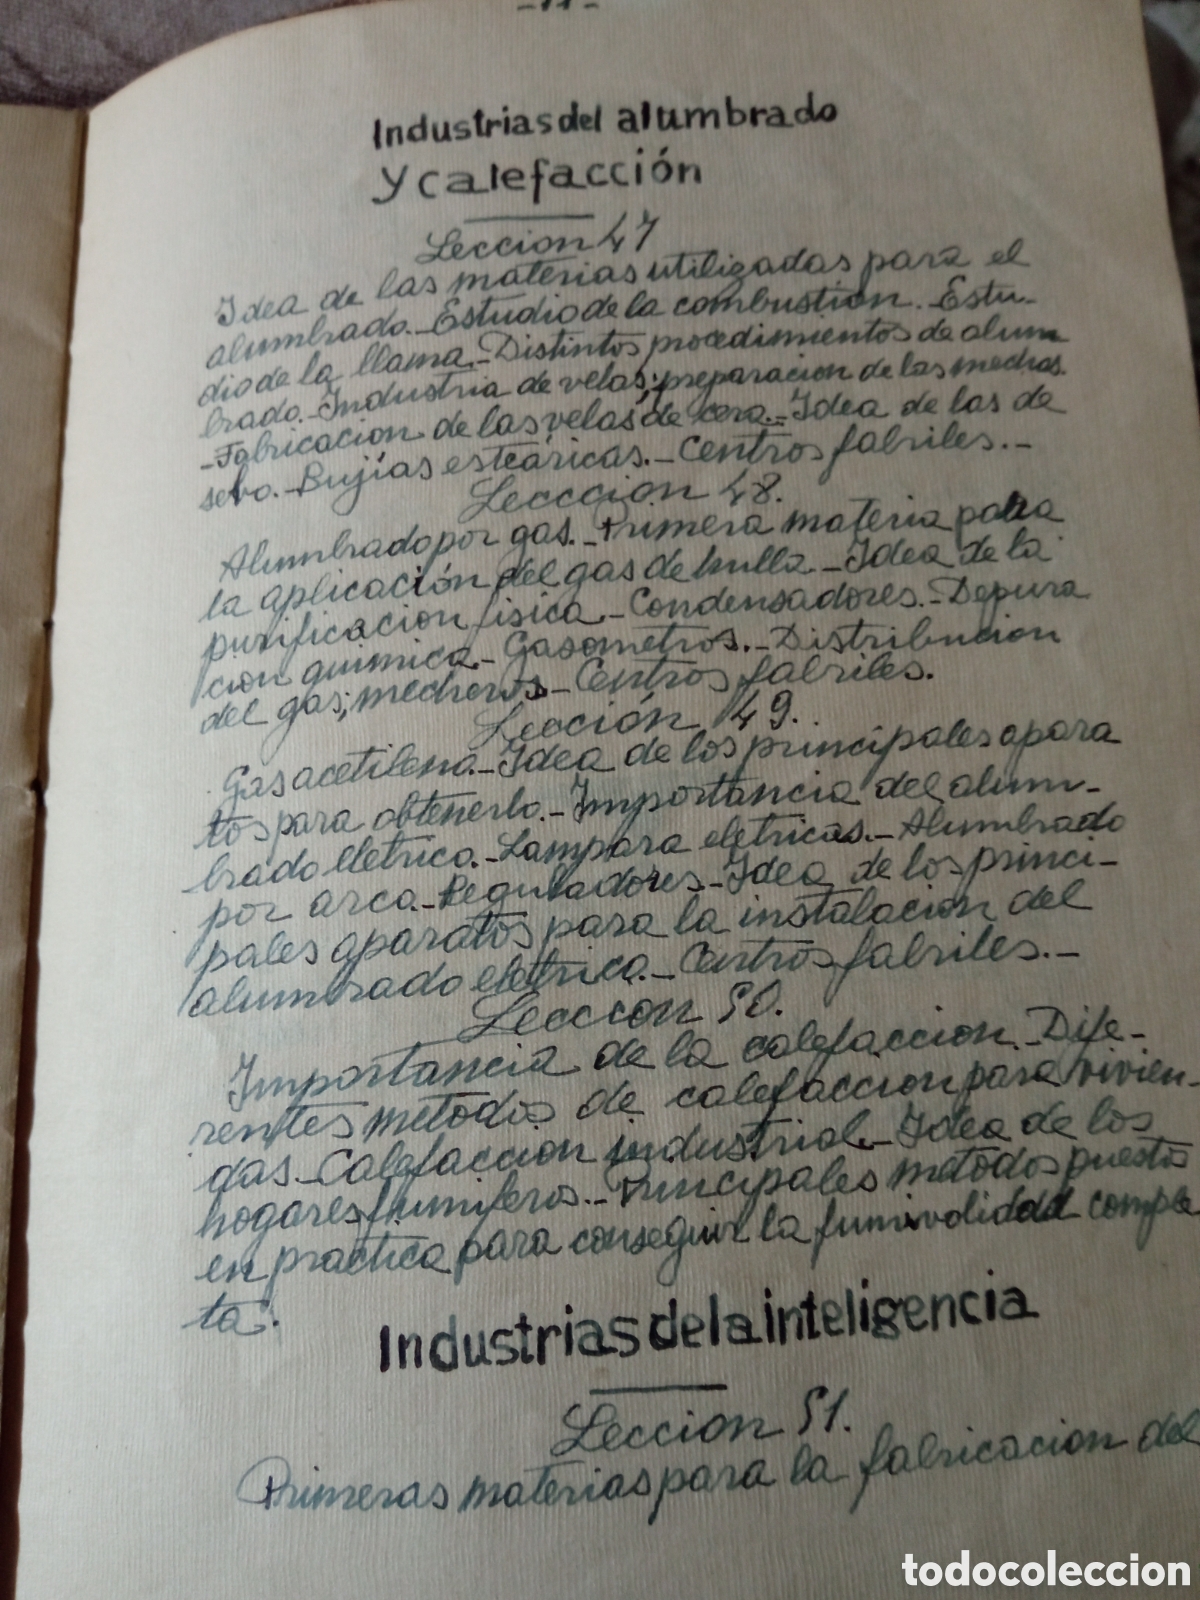 -11-
Industrias del alumbrado
y calefacción
Leccion 47
Idea de las materias utilizadas para el
alumbrado.-Estudio de la combustion.-Estu-
dio de la llama.-Distintos procedimientos de alum
brado.-Industria de velas; preparacion de las mechas.
-Fabricacion de las velas de cera.=Idea de las de
sebo.-Bujías esteáricas.-Centros fabriles.-
Lecccion 48.
Alumbrado por gas.-Primera materia para
la aplicación del gas de hulla.-Idea de la
purificacion fisica.-Condensadores.-Depura
cion quimica.-Gasometros.-Distribucion
del gas; mecheros.-Centros fabriles.
Lección 49.
Gas acetileno.-Idea de los principales apara
tos para obtenerlo.-Importancia del alum-
brado eletrico.-Lampara eletricas.-Alumbrado
por arco.-Reguladores.-Idea de los princi-
pales aparatos para la instalacion del
alumbrado eletrico.-Centros fabriles.-
Leccion 50.
Importancia de la calefaccion.-Dife-
rentes metodos de calefaccion para vivien-
das.-Calefaccion industrial.-Idea de los
hogares fumiferos.-Principales metodos puestos
en practica para conseguir la fumivolidad comple
ta.
Industrias de la inteligencia
Leccion 51.
Primeras materias para la fabricacion del
todocoleccion